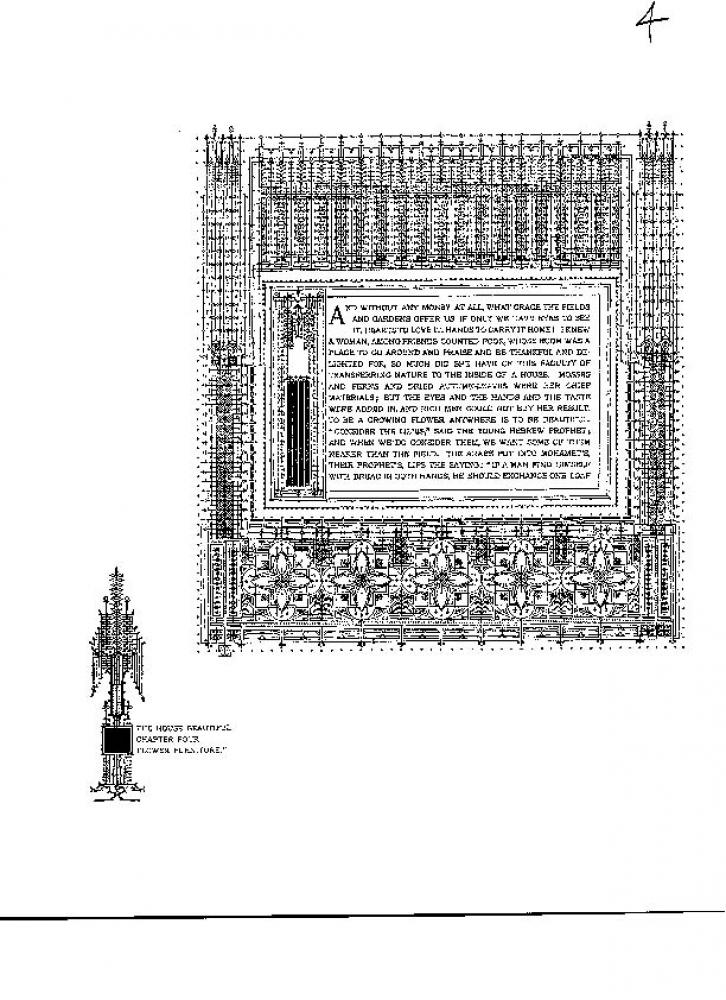 4
AND WITHOUT ANY MONEY AT ALL, WHAT GRACE THE FIELDS
AND GARDENS OFFER US IF ONLY WE HAVE EYES TO SEE
IT, HEARTS TO LOVE IT, HANDS TO CARRY IT HOME! I KNEW
A WOMAN, AMONG FRIENDS COUNTED POOR, WHOSE ROOM WAS A
PLACE TO GO AROUND AND PRAISE AND BE THANKFUL AND DE-
LIGHTED FOR, SO MUCH DID SHE HAVE OF THIS FACULTY OF
TRANSFERRING NATURE TO THE INSIDE OF A HOUSE. MOSSES
AND FERNS AND DRIED AUTUMN-LEAVES WERE HER CHIEF
MATERIALS; BUT THE EYES AND THE HANDS AND THE TASTE
WERE ADDED IN, AND RICH MEN COULD NOT BUY HER RESULT.
TO BE A GROWING FLOWER ANYWHERE IS TO BE BEAUTIFUL.
"CONSIDER THE LILIES," SAID THE YOUNG HEBREW PROPHET;
AND WHEN WE DO CONSIDER THEM, WE WANT SOME OF THEM
NEARER THAN THE FIELD. THE ARABS PUT INTO MOHAMET'S,
THEIR PROPHET'S, LIPS THE SAYING: "IF A MAN FIND HIMSELF
WITH BREAD IN BOTH HANDS, HE SHOULD EXCHANGE ONE LOAF
THE HOUSE BEAUTIFUL
CHAPTER FOUR
FLOWER FURNITURE."